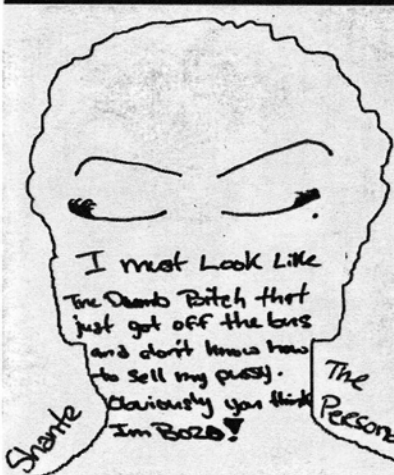 I must Look Like
The Dumb Bitch that
just got off the bus
and don't know how
to sell my pussy.
Obviously you think
Im BOZO!
Shante
The
Persona